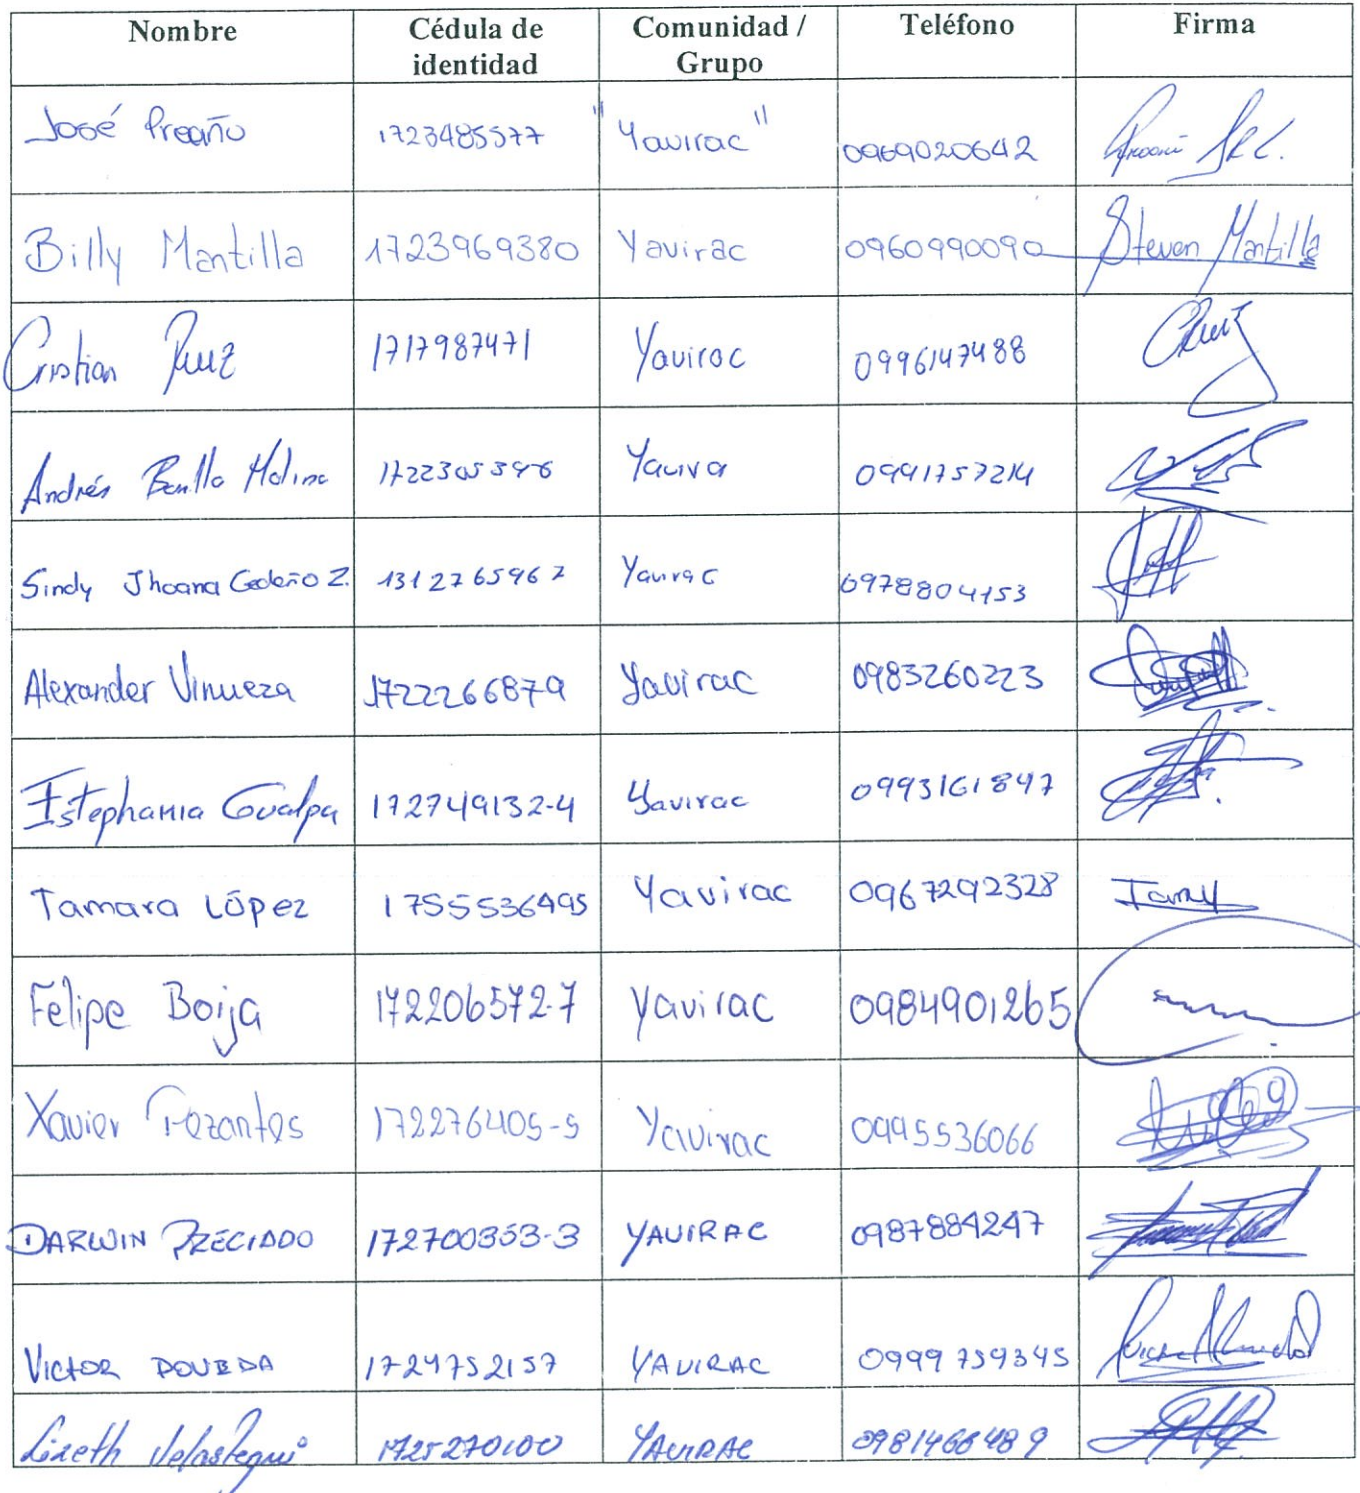 Nombre Cédula de identidad Comunidad / Grupo Teléfono Firma
José Preciño 1723485577 "Yavirac" 0969020642
Billy Mantilla 1723969380 Yavirac 0960990090 Steven Mantilla
Cristian Ruiz 1717987471 Yavirac 0996147488 CRuiz
Andrés Bonilla Molina Yavira 0991757214
Sindy Jhoana Cedeño Z. 1312765967 Yavirac 0978804153
Alexander Vinueza 1722266879 Yavirac 0983260223
Estephania Gualpa 172749132-4 Yavirac 0993161847
Tamara López 1755536495 Yavirac 0967292328 Tamy
Felipe Borja 172206572-7 Yavirac 0984901265
Xavier Pozantes 172276405-5 Yavirac 0995536066
DARWIN PRECIADO 172700353-3 YAVIRAC 0987884247
VICTOR POVEDA 1724752157 YAVIRAC 0999759345
Lizeth Velastegui 1725270100 YAVIRAC 0981466489